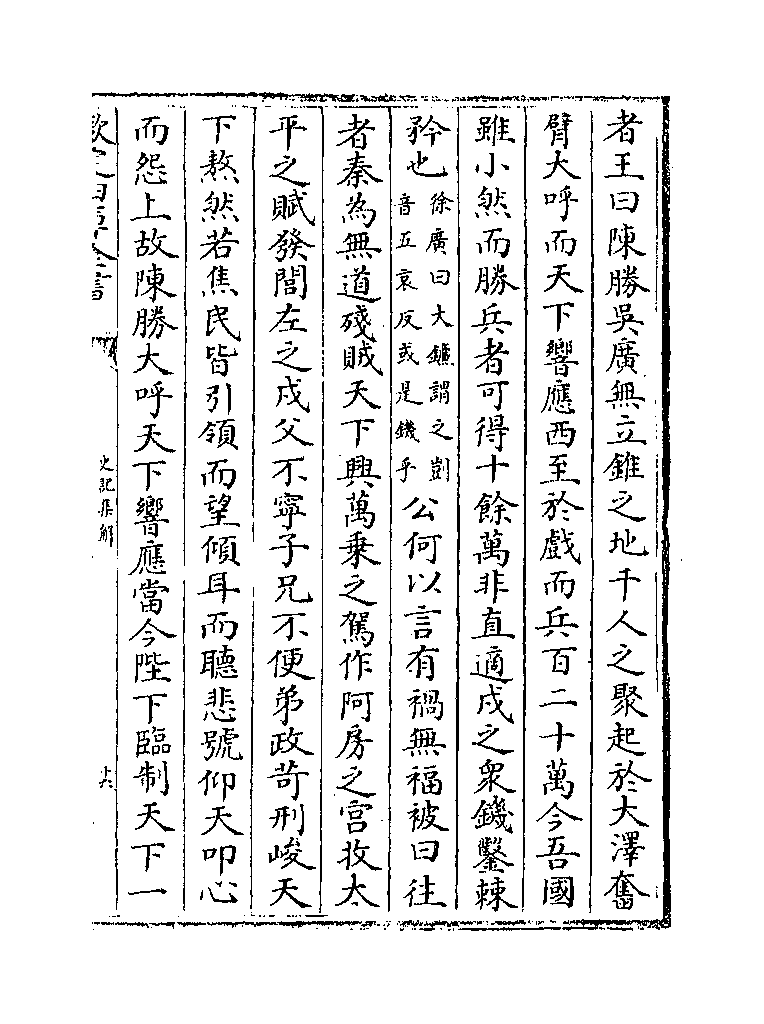 者王曰陳勝吳廣無立錐之地千人之聚起於大澤奮
臂大呼而天下響應西至於戲而兵百二十萬今吾國
雖小然而勝兵者可得十餘萬非直適戍之衆鐖鑿棘
矜也徐廣曰大鐮謂之剴音五哀反或是鐖乎公何以言有禍無福被曰往
者秦為無道殘賊天下興萬乗之駕作阿房之宫收太
平之賦發閭左之戍父不寧子兄不便弟政苛刑峻天
下熬然若焦民皆引領而望傾耳而聽悲號仰天叩心
而怨上故陳勝大呼天下響應當今陛下臨制天下一
欽定四庫全書
史記集解
十六